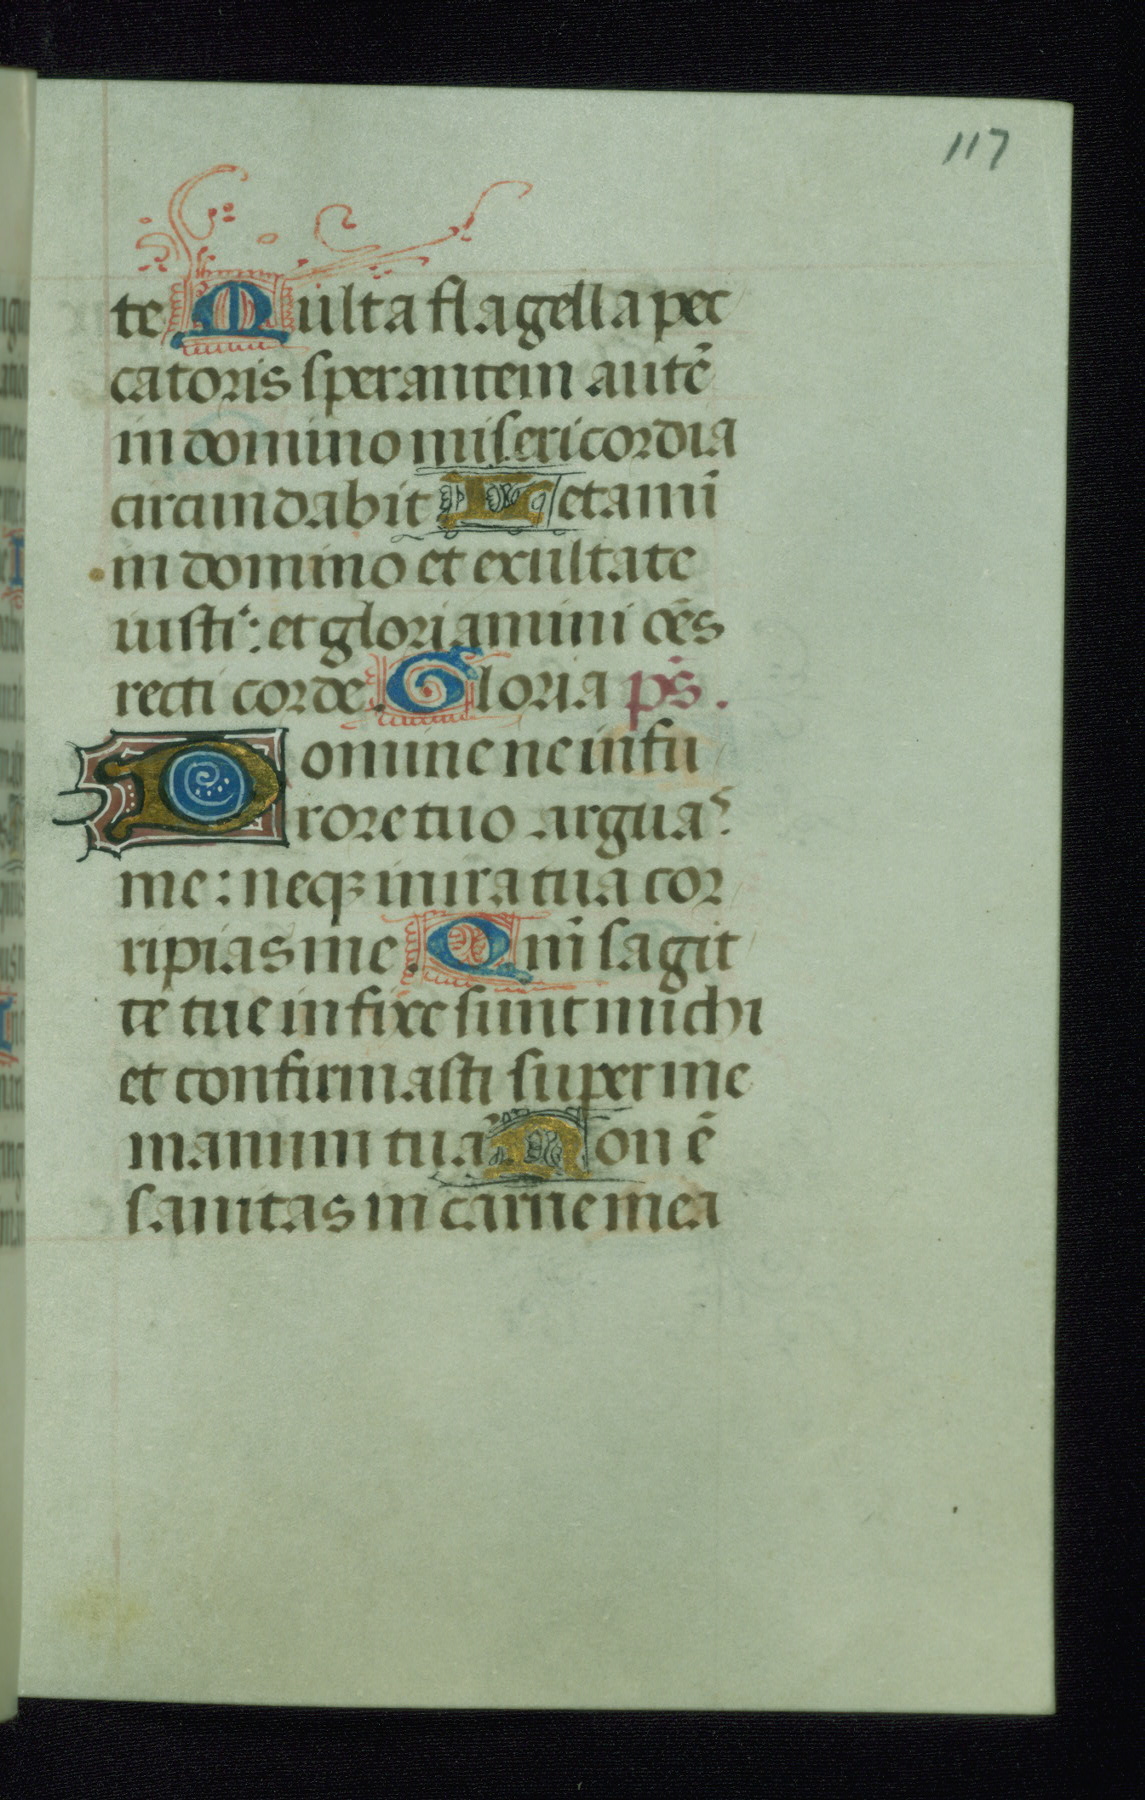 117
te Multa flagella pec
catoris sperantem autē
in domino misericordia
circundabit Letaminī
in domino et exultate
iusti: et gloriamini oēs
recti corde. Gloria pṡ.
Domine ne in fu
rore tuo arguas
me: neqꝫ in ira tua cor
ripias me. Qm̄ sagit
te tue infixe sunt michi
et confirmasti super me
manum tuā. Non ē
sanitas in carne mea